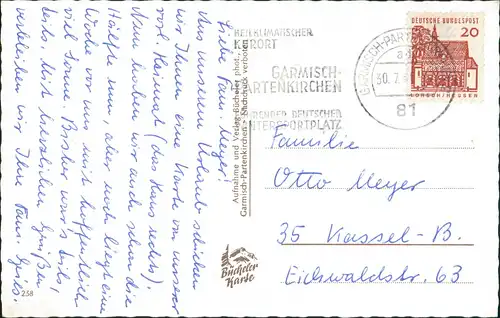 Liebe Fam. Meyer!
Aus unserem Urlaub schicken
wir Ihnen eine Karte von unserer
vorl. Heimat (das Haus rechts).
Nun haben wir auch schon die
Hälfte rum, aber noch liegt eine
Woche vor uns mit hoffentlich
viel Sonne. Bisher war's teils,
teils. Mit herzlichen Grüßen
verbleiben wir Ihre Fam. Geis.
258
Aufnahme und Verlag: Bücheler phot.
Garmisch-Partenkirchen - Nachdruck verboten
Bücheler
Karte
HEILKLIMATISCHER
KURORT
GARMISCH-
PARTENKIRCHEN
FÜHRENDER DEUTSCHER
WINTERSPORTPLATZ
GARMISCH-PARTENKIRCHEN
30.7.
81
DEUTSCHE BUNDESPOST
20
LORSCH/HESSEN
Familie
Otto Meyer
35 Kassel-B.
Eichwaldstr. 63